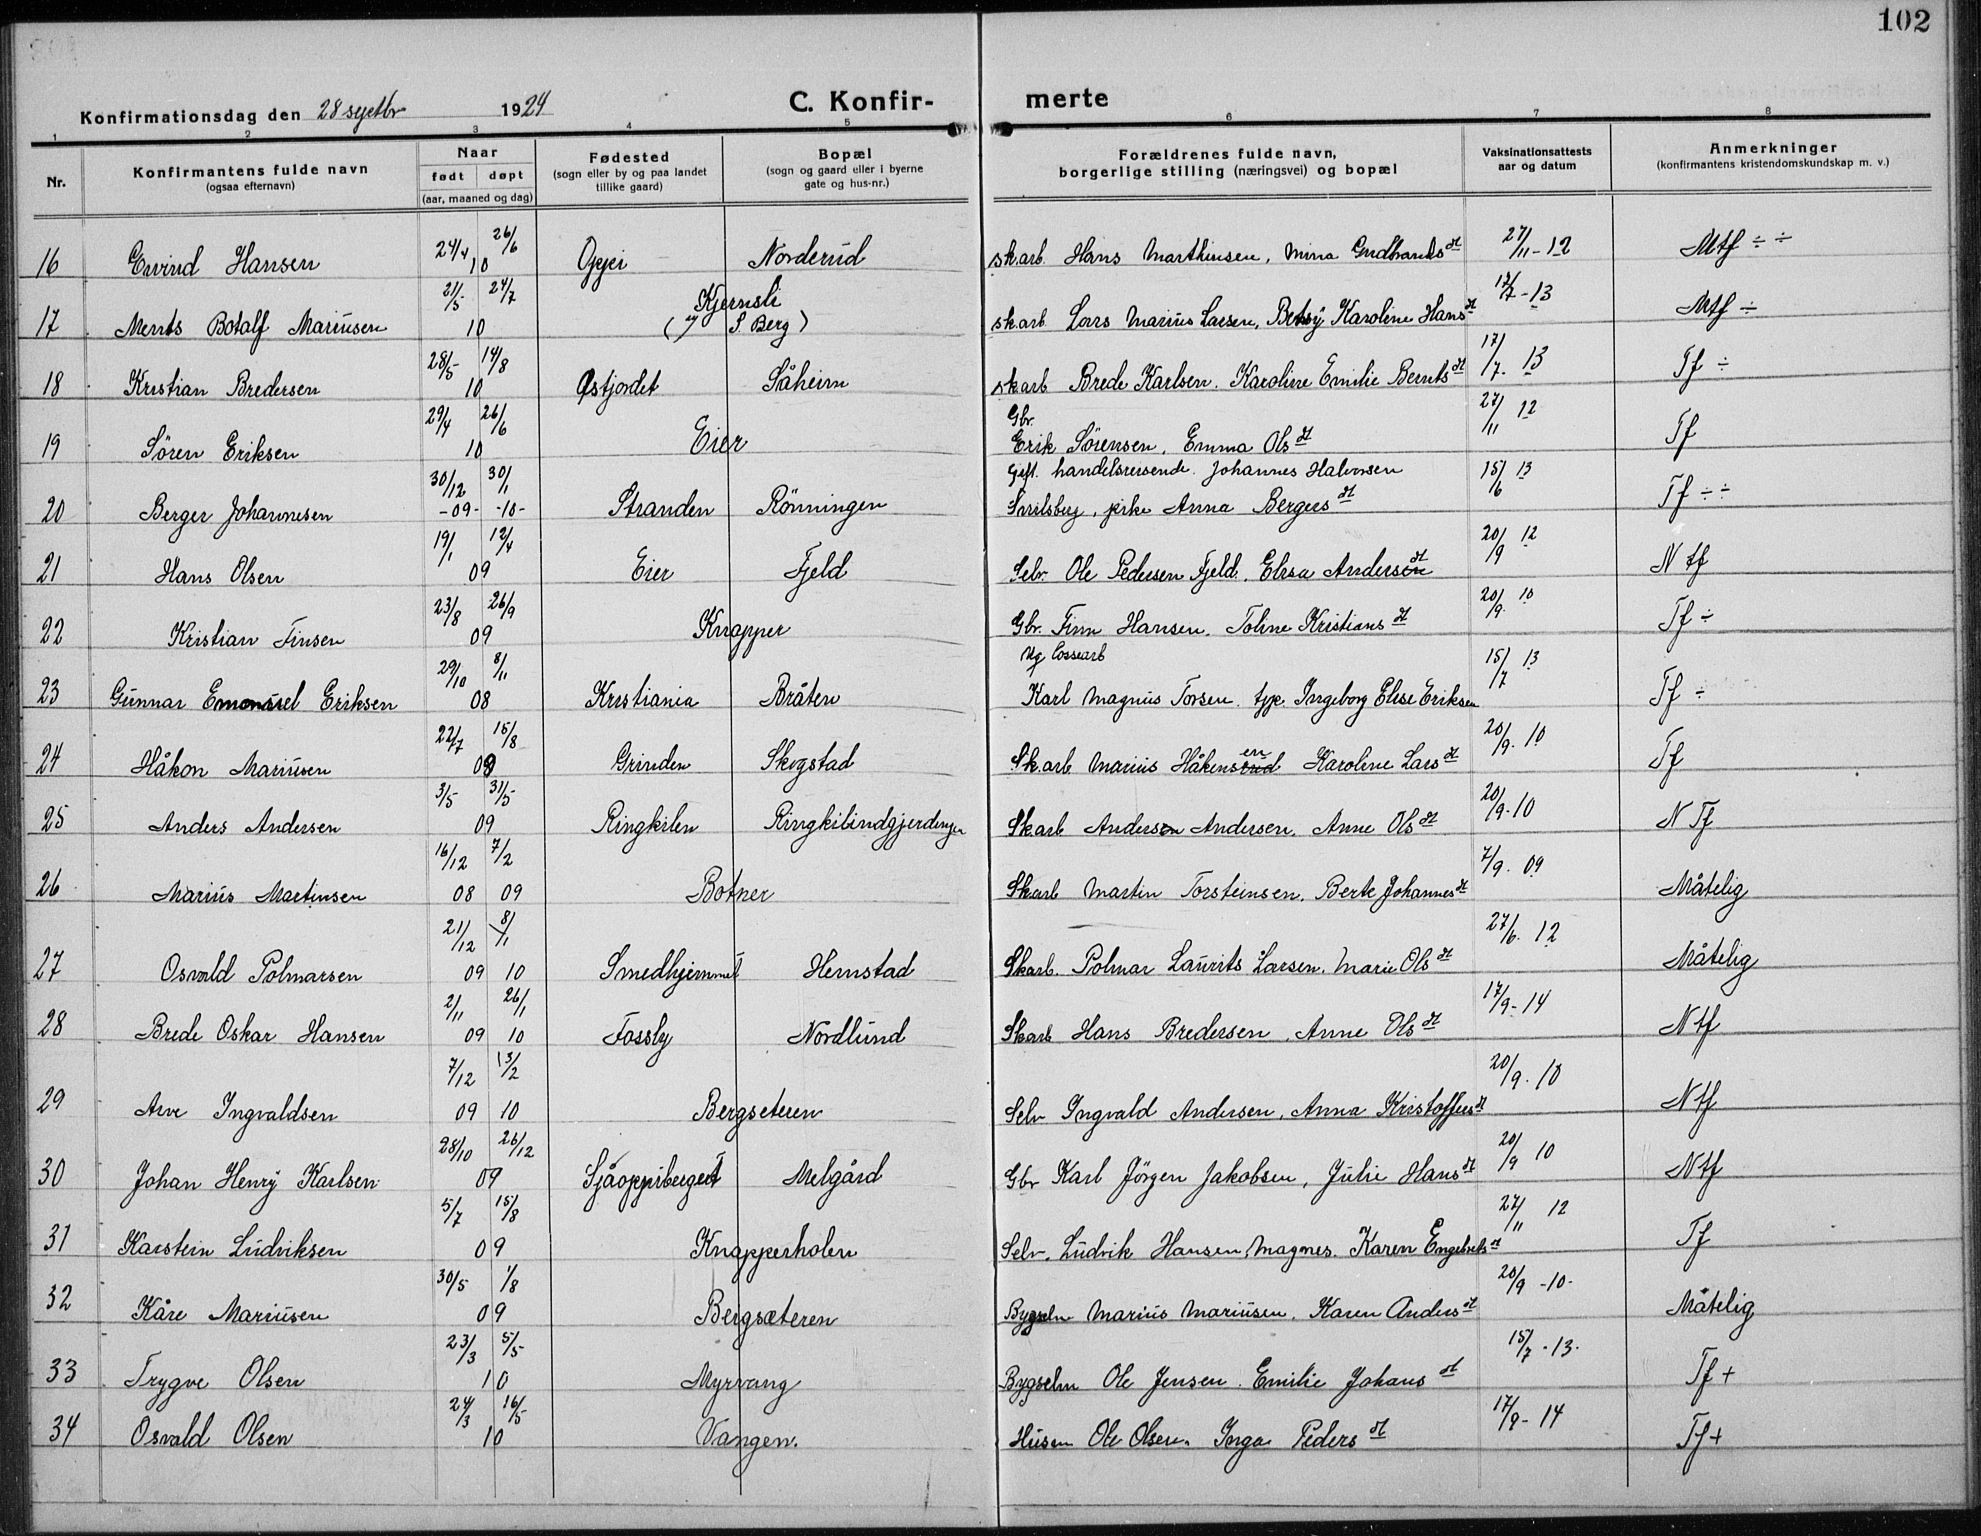 102
Konfirmationsdag den 28 septbr 1924 C. Konfir- merte
1 2 3 4 5 6 7 8
Nr. Konfirmantens fulde navn (ogsaa efternavn) Naar født døpt (aar, maaned og dag) Fødested (sogn eller by og paa landet tillike gaard) Bopæl (sogn og gaard eller i byerne gate og hus-nr.) Forældrenes fulde navn, borgerlige stilling (næringsvei) og bopæl Vaksinationsattests aar og datum Anmerkninger (konfirmantens kristendomskundskap m. v.)
16 Eivind Hansen 24/4 26/6 10 Norderud skarb. Hans Marthinsen, Mina Gudbrands dt 27/11-12 Mtf ÷ ÷
17 Ments Botalf Mariusen 21/5 24/7 10 Kjernsli ( S. Berg) skarb. Lars Marius Larsen, Betsy Karoline Hans dt 17/7-13 Mtf ÷
18 Kristian Bredersen 28/5 14/8 10 Østjordet Såheim skarb Brede Karlsen. Karoline Emilie Bernts dt 17/7. 13 Tf ÷
19 Søren Eriksen 29/4 26/6 10 Eier Gbr. Erik Sørensen, Emma Ols dt 27/11 12 Tf
20 Berger Johannesen 30/12 30/1 -09- -10- Stranden Rönningen Gift. handelsreisende. Johannes Halvorsen
Smilsberg, pike Anna Bergers dt 15/6 13 Tf ÷ ÷
21 Hans Olsen 19/1 12/4 09 Eier Fjeld Selv. Ole Pedersen Fjeld. Elisa Andersen dt 20/9 12 N tf
22 Kristian Finsen 23/8 26/9 09 Knapper Gbr. Finn Hansen. Toline Kristians dt 20/9. 10 Tf ÷
23 Gunnar Emanuel Eriksen 29/10 8/11 08 Kristiania Bråten Ug lossearb
Karl Magnus Torsen. tjp. Ingeborg Elise Eriksen 15/7 13 Tf ÷
24 Håkon Mariusen 22/7 15/8 09 Grinden Skogstad Skarb Marius Håkensrud en Karoline Lars dt 20/9. 10 Tf
25 Anders Andersen 3/5 31/5 09 Ringkilen Ringkilindgjerdingen Skarb Andersen Andersen. Anne Ols dt 20/9-10 N Tf
26 Marius Martinsen 16/12 7/2 08 09 Botner Skarb Martin Torsteinsen. Berte Johannes dt 7/9. 09 Måtelig
27 Osvald Polmarsen 21/12 8/1 09 10 Smedhjemmet Hemstad Skarb. Polmar Laurits Larsen. Marie Ols dt 27/6. 12 Måtelig
28 Brede Oskar Hansen 2/11 26/1 09 10 Fossly Nordlund Skarb Hans Bredersen, Anne Ols dt 17/9-14 Ntf
29 Arve Ingvaldsen 7/12 13/2 09 10 Bergseteren Selv Ingvald Andersen, Anna Kristoffers dt 20/9. 10 Ntf
30 Johan Henry Karlsen 28/10 26/12 09 Sjåoppibergert Melgård Gbr Karl Jörgen Jakobsen, Julie Hans dt 20/9 10 Ntf
31 Karstein Ludviksen 5/7 15/8 09 Knapperholen Selv. Ludvik Hansen Magnes. Karen Engebrets dt 27/11 12 Tf
32 Kåre Mariusen 30/5 1/8 09 Bergsæteren Bygselm Marius Mariusen. Karen Anders dt 20/9 -10- Måtelig
33 Trygve Olsen 23/3 5/5 10 Myrvang Bygselm Ole Jensen. Emilie Johans dt 15/7-13. Tf +
34 Osvald Olsen 24/3 16/5 10 Vangen. Husm Ole Olsen. Inga Peders dt 17/9-14 Tf +